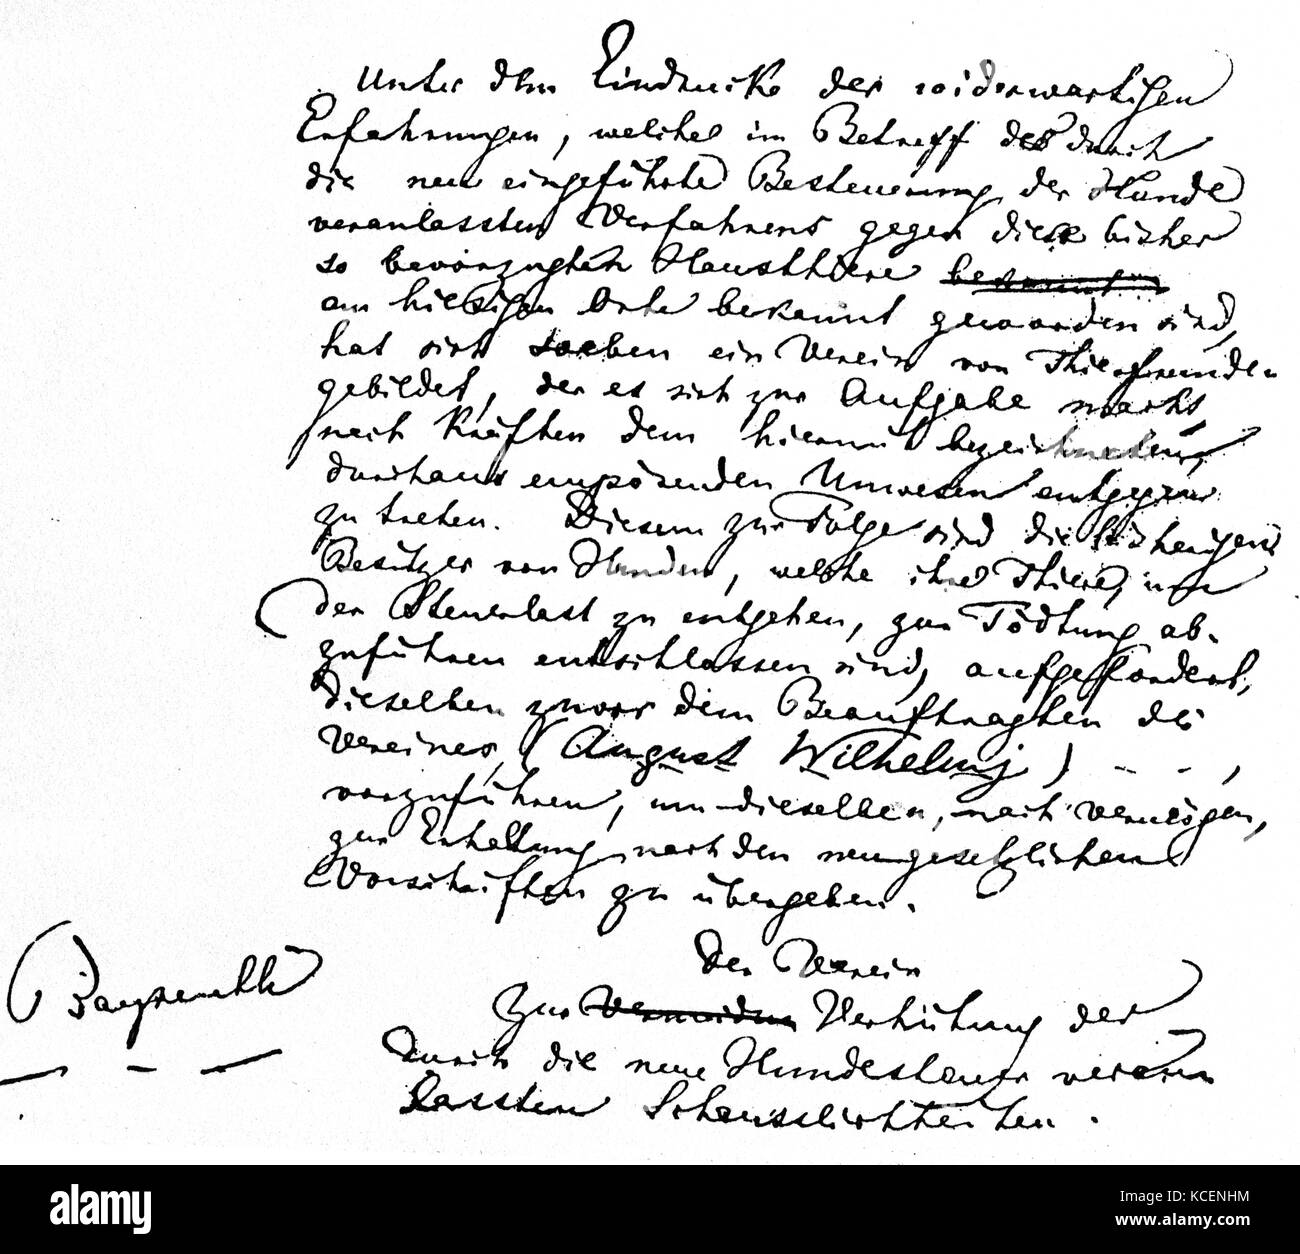 Unter dem Eindrucke der widerwärtigen
Erfahrungen, welche im Betreff des durch
die neu eingeführte Besteuerung der Hunde
veranlassten Verfahrens gegen diese bisher
so bevorzugten Hausthiere bekannt
am hiesigen Orte bekannt geworden sind,
hat sich soeben ein Verein von Thierfreunden
gebildet, der es sich zur Aufgabe macht,
nach Kräften dem hiermit bezeichneten,
durchaus empörenden Unwesen entgegen
zu treten. Diesem zur Folge sind die bisherigen
Besitzer von Hunden, welche ihre Thiere, um
der Steuerlast zu entgehen, zur Tödtung ab-
zuführen entschlossen sind, aufgefordert,
dieselben zuvor dem Beauftragten des
Vereines, (August Wilhelmj) - - - ,
vorzuführen, um dieselben, nach Vermögen,
zur Erhaltung nach den neugesetzlichen
Vorschriften zu übergeben.
Der Verein
Bayreuth
zur Vermeidung Verhütung der
durch die neue Hundesteuer veran-
lassten Scheusslichkeiten.
a alamy stock photo
alamy
Image ID: KCENHM
www.alamy.com